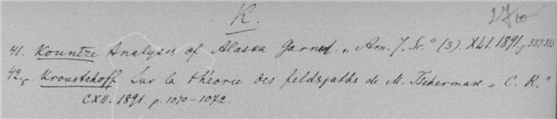 K.
41. Kountze Analyses of Alaska Garnet. „Am. J. Sc." (3). XLI. 1891.
42. Kroustchoff Sur la théorie des feldspaths de M. Tschermak. „C. R."
CXII. 1891. p. 1070-1072.